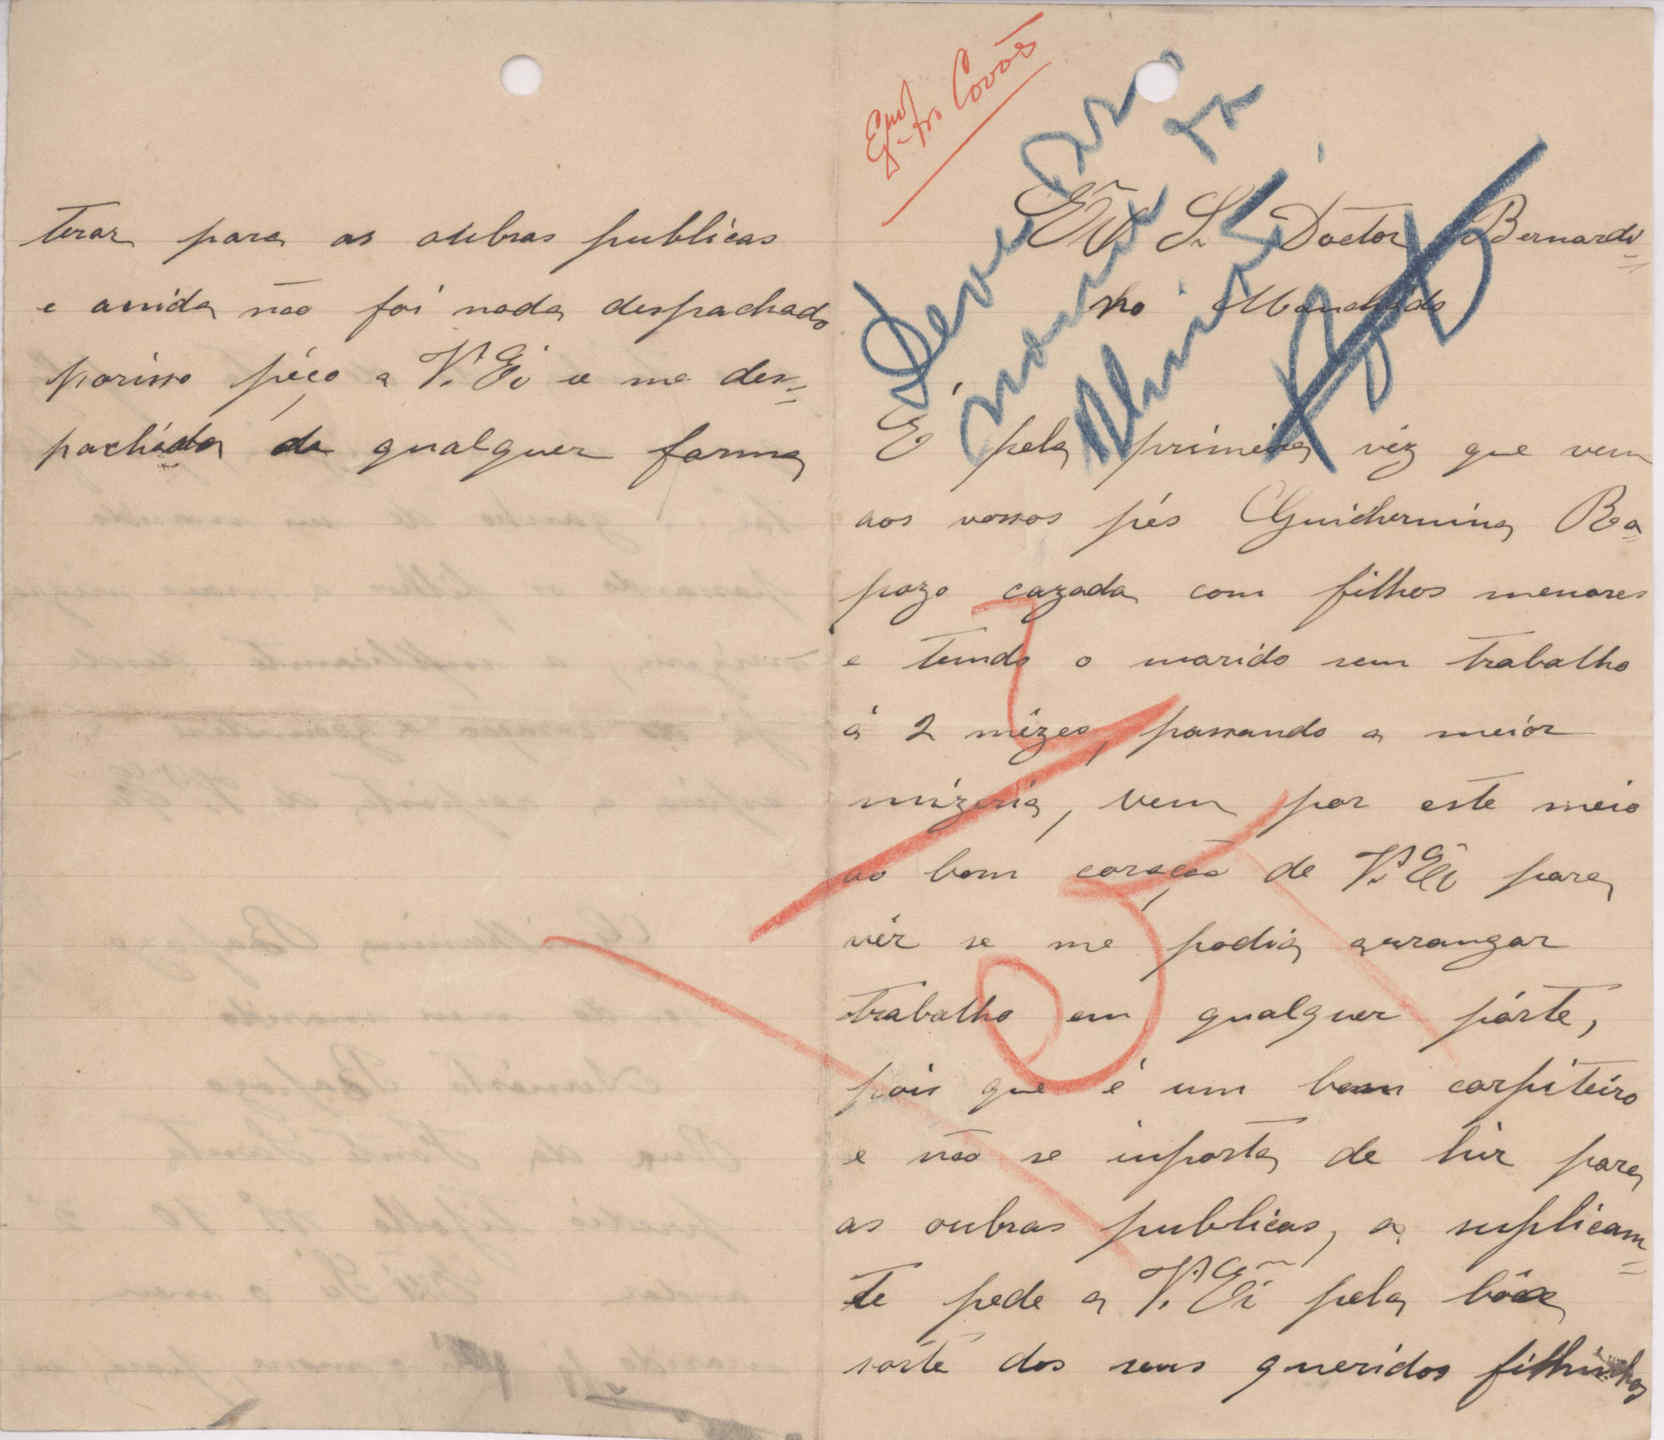 terar para as oubras publicas
e ainda não foi nada despachado
porisso péço a V. Ei. a me des=
pachála de qualquer forma
Covões
Exmo Sr. Doctor Bernardi=
no Manchado
É pela priméira vêz que vem
aos vossos pés Guichermina Ra=
pozo cazada com filhos menores
e tendo o marido sem trabalho
á 2 mêzes, passando a meior
mizeria, vem por este meio
ao bom coração de V. Ex para
vêr se me podia arrangar
trabalho em qualquer párte,
pois que é um bom carpiteiro
e não se inporta de hir para
as oubras publicas, a suplicam=
te pede a V. Ex pela bôa
sorte dos seus queridos filhinhos